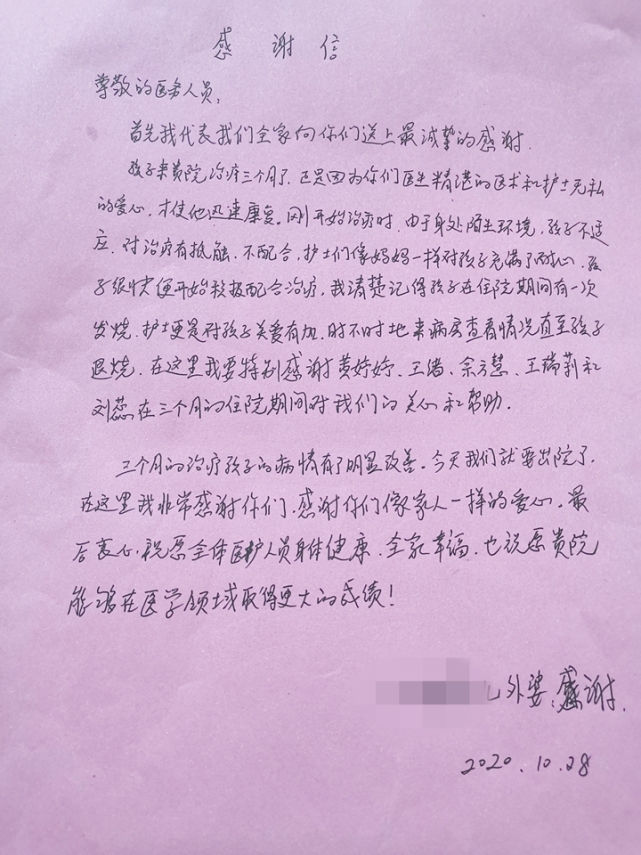 感谢信
尊敬的医务人员,
首先我代表我们全家向你们送上最诚挚的感谢.
孩子来贵院治疗三个月了.正是因为你们医生精湛的医术和护士无私
的爱心,才使他迅速康复.刚开始治疗时.由于身处陌生环境,孩子不适
应.对治疗有抵触.不配合,护士们像妈妈一样对孩子充满了耐心,孩
子很快便开始积极配合治疗,我清楚记得孩子在住院期间有一次
发烧.护士更是对孩子关爱有加.时不时地来病房查看情况直至孩子
退烧.在这里我要特别感谢黄婷婷、王、余方慧、王瑞莉和
刘蕊在三个月的住院期间对我们的关心和帮助.
三个月的治疗孩子的病情有了明显改善。今天我们就要出院了,
在这里我非常感谢你们.感谢你们像家人一样的爱心。最
后衷心祝愿全体医护人员身体健康.全家幸福.也祝愿贵院
能够在医学领域取得更大的成绩!
外婆:感谢.
2020.10.28